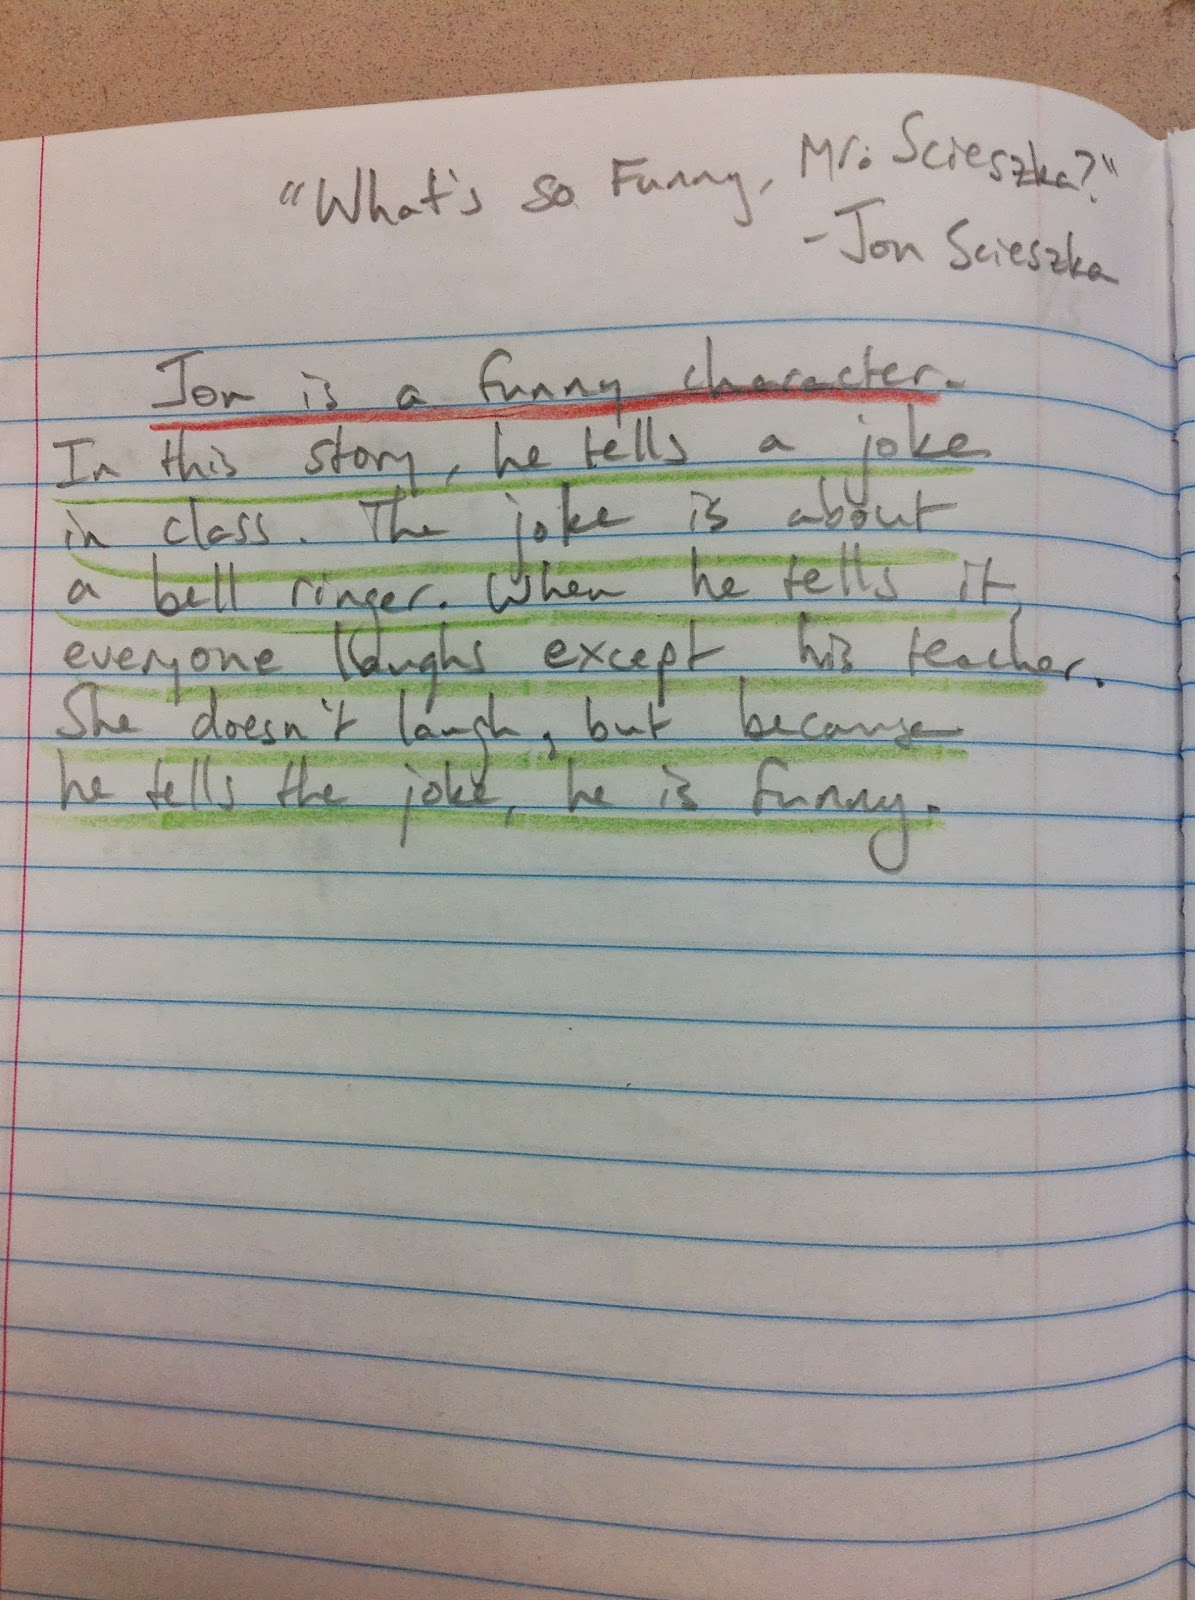 "What's so Funny, Mr. Scieszka?"
-Jon Scieszka
Jon is a funny character.
In this story, he tells a joke
in class. The joke is about
a bell ringer. When he tells it,
everyone laughs except his teacher.
She doesn't laugh, but because
he tells the joke, he is funny.